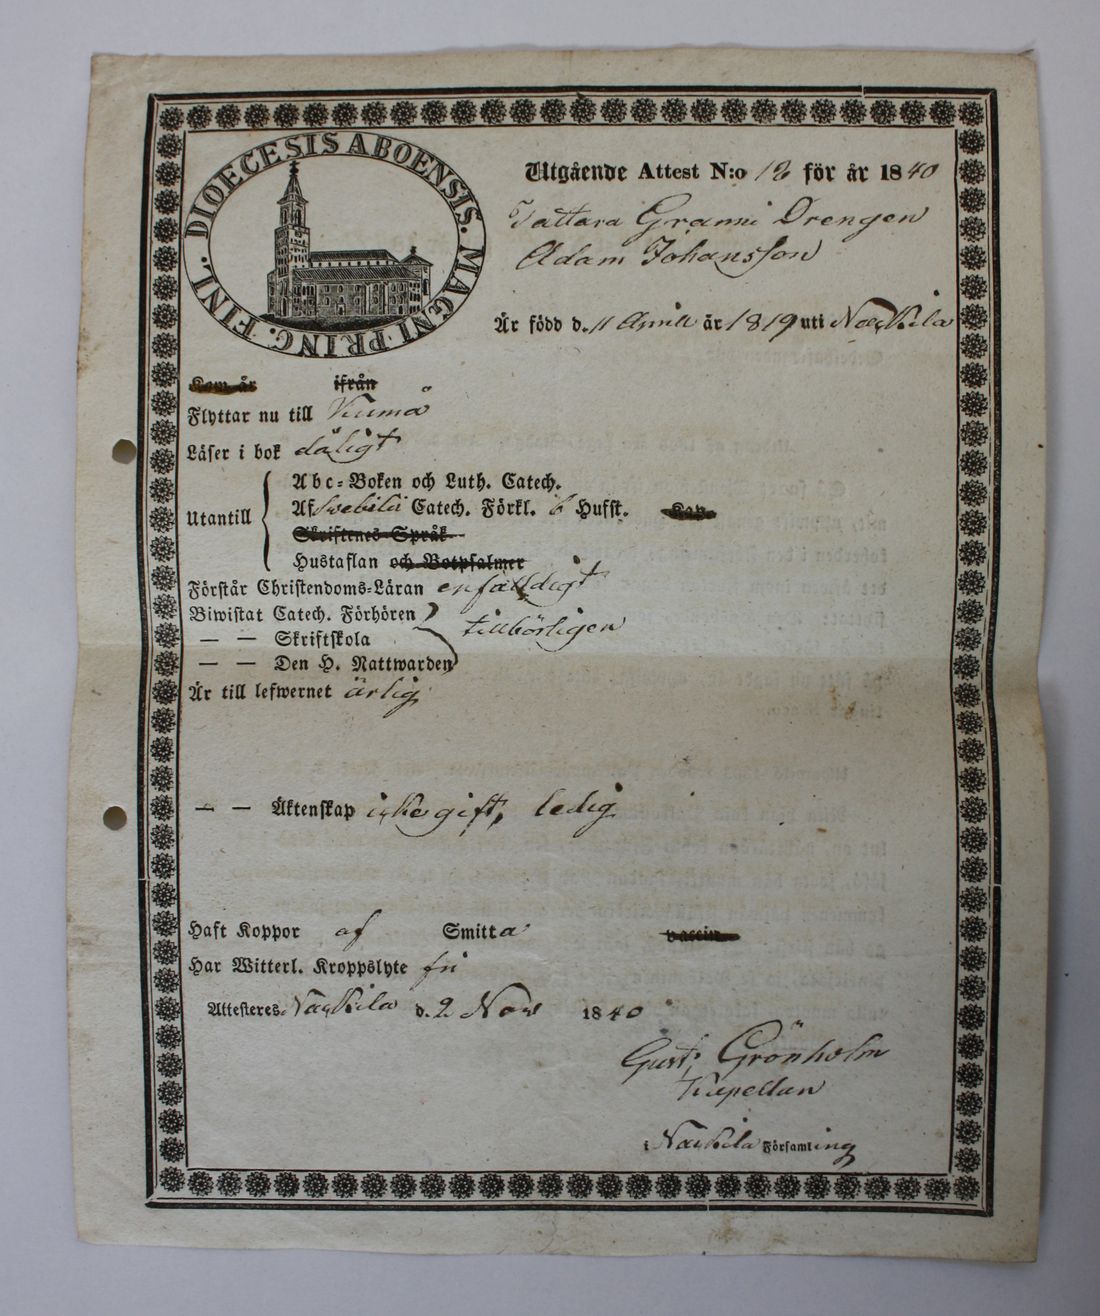 DIOECESIS ABOENSIS. MAGNI. PRINC. FINL.
Utgående Attest N:o 18 för år 1840
Tattara Grami Drengen
Adam Johansson
Är född d. 11 April år 1819 uti Nackila
Kom år ifrån
Flyttar nu till Kumå
Läser i bok dåligt
Utantill
Abc-Boken och Luth. Catech.
Af Swebilii Catech. Förkl. 6 Hufst. Kap.
Skriftenes Språk
Hustaflan och Botpsalmer
Förstår Christendoms-Läran enfalldigt
Biwistat Catech. Förhören
— — Skriftskola tillbörligen
— — Den H. Nattwarden
Är till lefwernet ärlig
— — Äktenskap icke gift, ledig
Haft Koppor af Smitta vaccin
Har Witterl. Kroppslyte fri
Attesteres Nackila d. 2 Nov 1840
Gust: Grönholm
Kapellan
i Nackila Församling